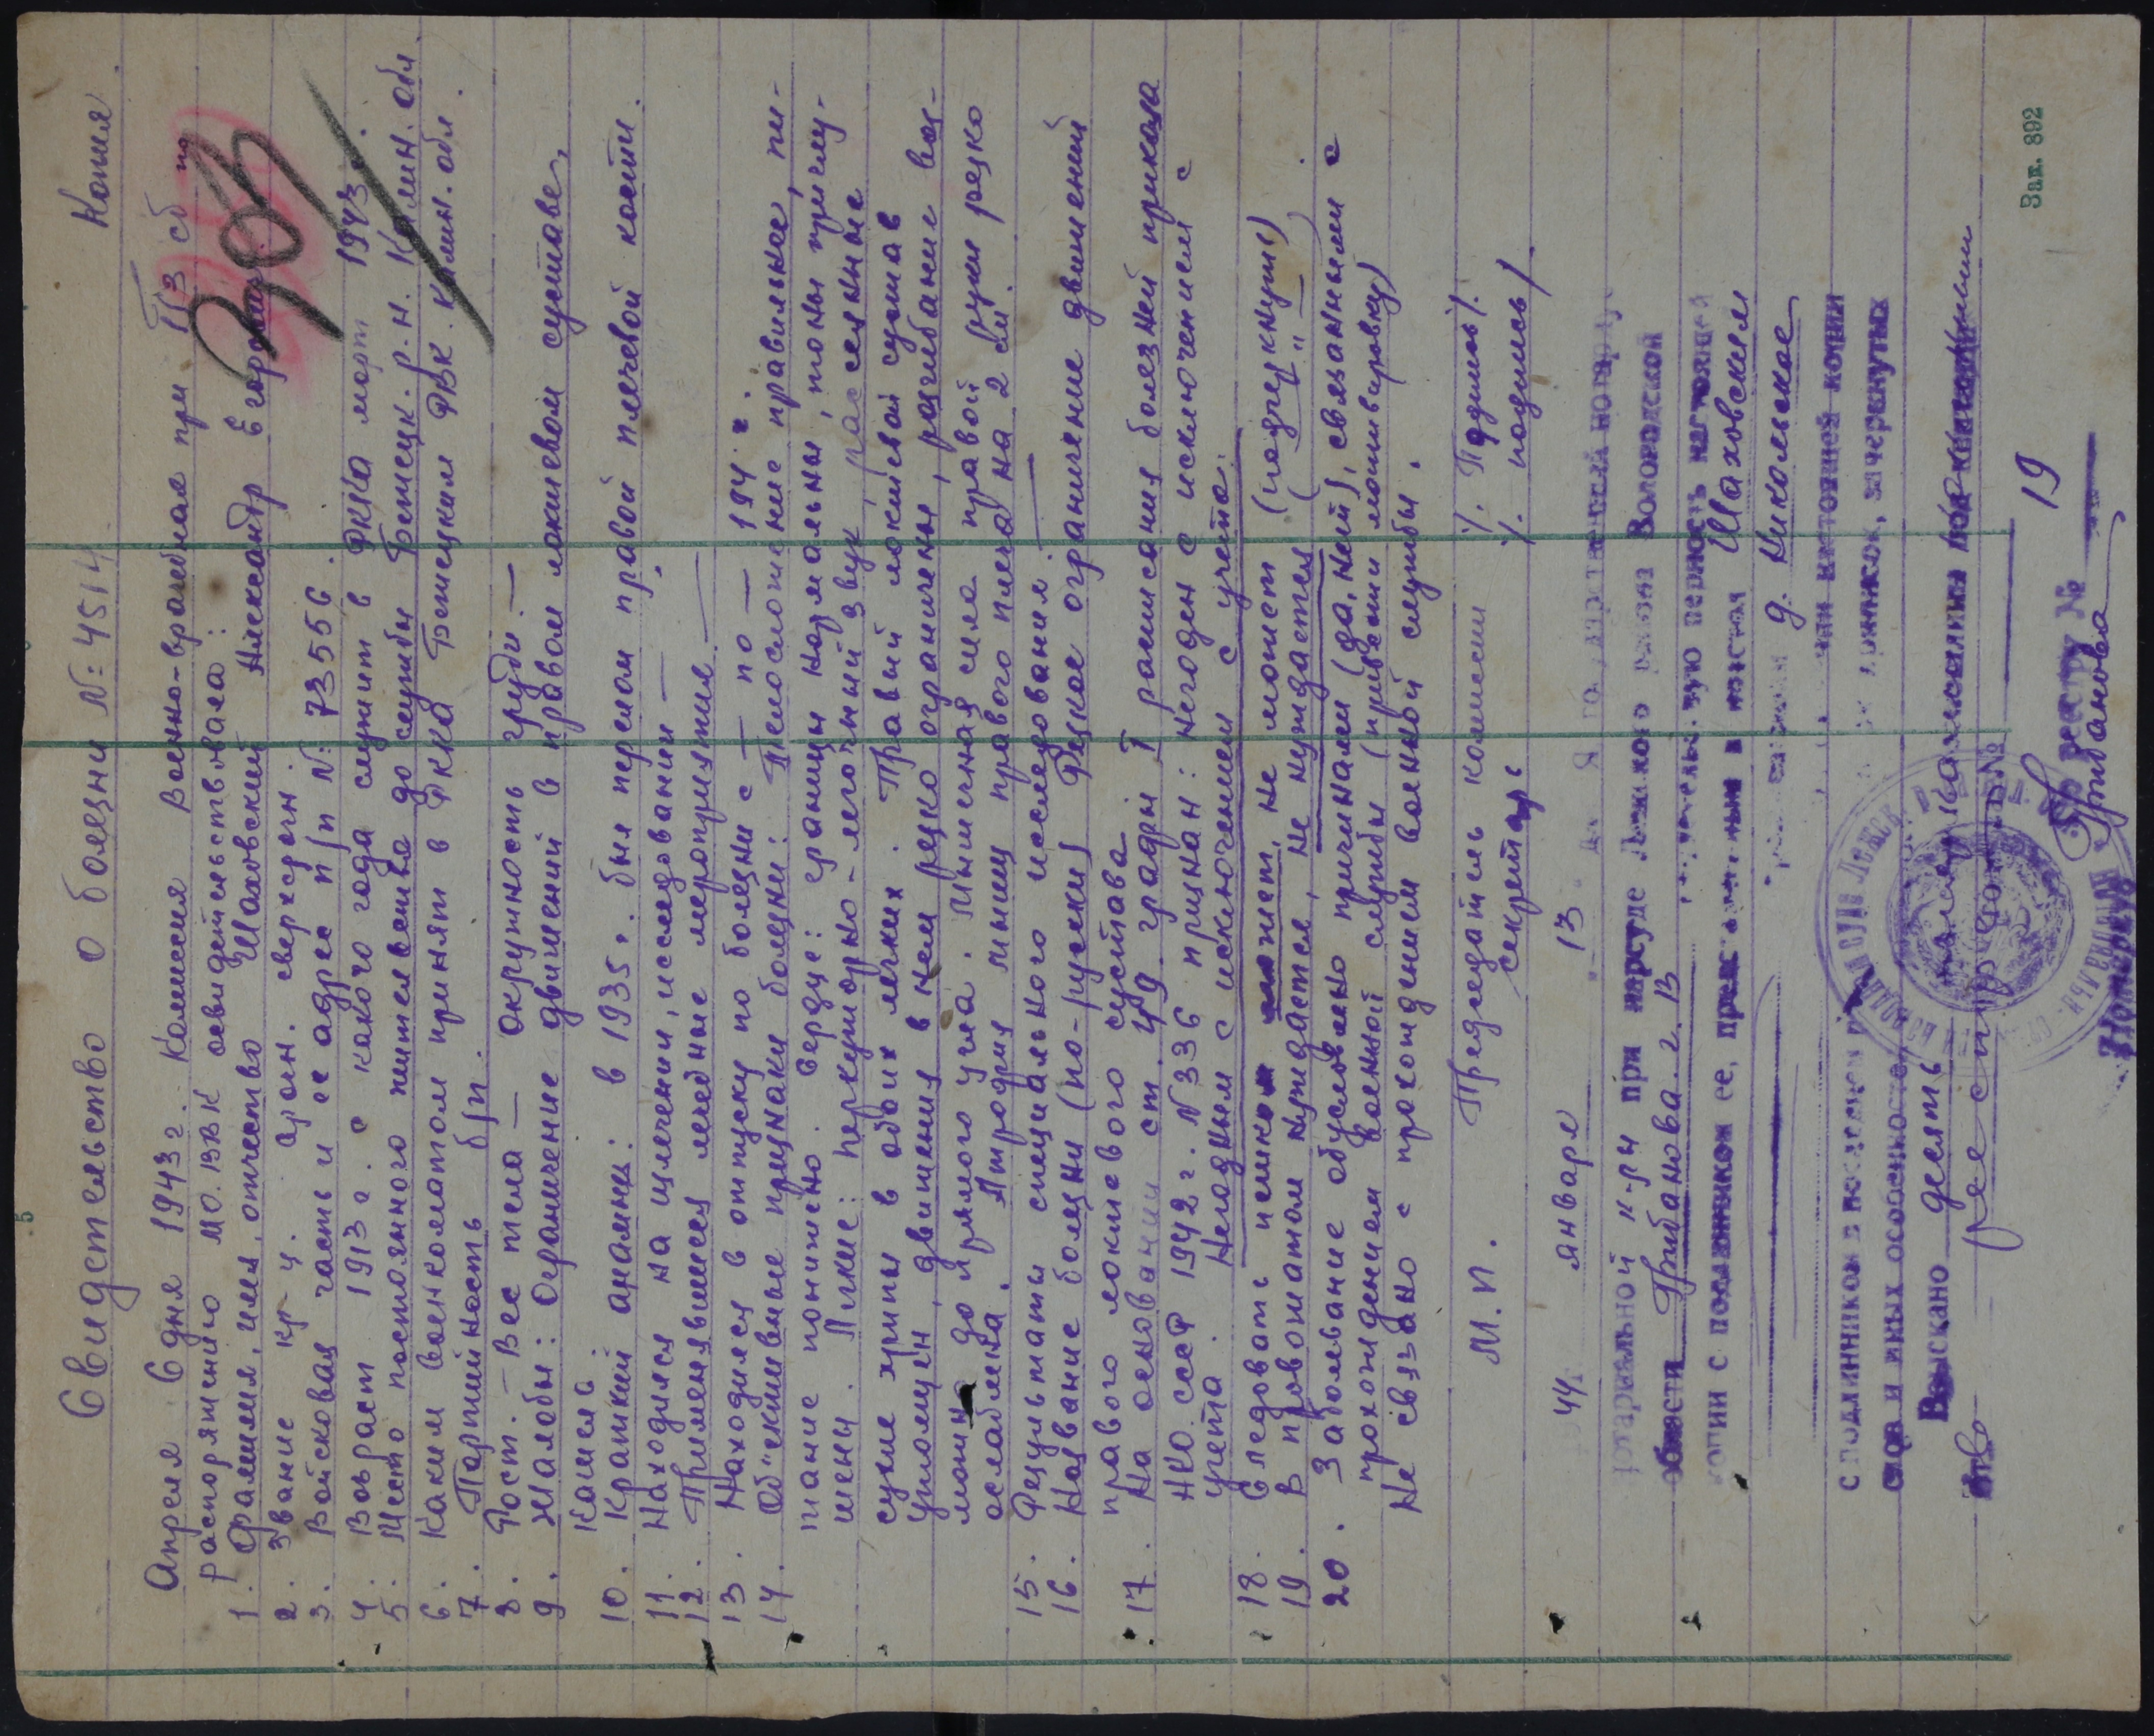 Копия
Свидетельство о болезни №: 4514
Апреля 6 дня 1943 г. Комиссия Военно-врачебная при ПЗ сб по
распоряжению МО.ВВК освидетельствовала:
1. Фамилия, имя, отчество Шаховский Александр Егорович
2. Звание кр-ц. арт. сверхсрочн.
3. Войсковая часть и ее адрес п/п №: 73556.
4. Возраст 1913 г. с какого года служит в РККА март 1943.
5. Место постоянного жительства до службы Бежецк. р.н. Калин. обл.
6. Каким военкоматом принят в РККА Бежецким РВК. Калин. обл.
7. Партийность б/п.
8. Рост. - Вес тела — окружность груди. —
9. Жалобы: Ограничение движений в правом локтевом суставе,
кашель
10. Краткий анамнез: в 1935 г. был перелом правой плечевой кости.
11. Находился на излечении, исследовании —
12. Применявшиеся лечебные мероприятия —
13. Находился в отпуску по болезни с — по — 194 г.
14. Об"ективные признаки болезни: Телосложение правильное, пи-
тание понижено. Сердце: границы нормальны, тоны приглу-
шены. Легкие: перкуторно-легочный звук, рассеянные
сухие хрипы в обоих легких. Правый локтевой сустав
утолщен, движения в нем резко ограничены, разгибание воз-
можно до прямого угла. Мышечная сила правой руки резко
ослаблена. Атрофия мышц правого плеча на 2 см.
15. Результаты специального исследования: —
16. Название болезни (по-русски) Резкое ограничение движений
правого локтевого сустава
17. На основании ст. 49 графы I расписания болезней приказа
НКО. СССР 1942 г. №336 признан: негоден с исключением с
учета. Негодным с исключением с учета.
18. Следовать пешком может, не может (подчеркнуть)
19. В провожатом нуждается, не нуждается ( — " — )
20. Заболевание обусловлено причинами (да, нет), связанными с
прохождением военной службы (привести мотивировку)
Не связано с прохождением военной службы.
М.П. Председатель комиссии /. Подпись /.
секретарь /. подпись /
44 г. января 13 дня Я государственный нотариус
нотариальной к-ры при нарсуде Лежского района Вологодской
области Грибанова. г. В
копии с подлинником ее, представленным в контору Шаховским
д. Никольское
с подлинником
слов и иных особенностей
Взыскано десять
реестр
По реестру № 19
Нотариус Грибанова
Зак. 892